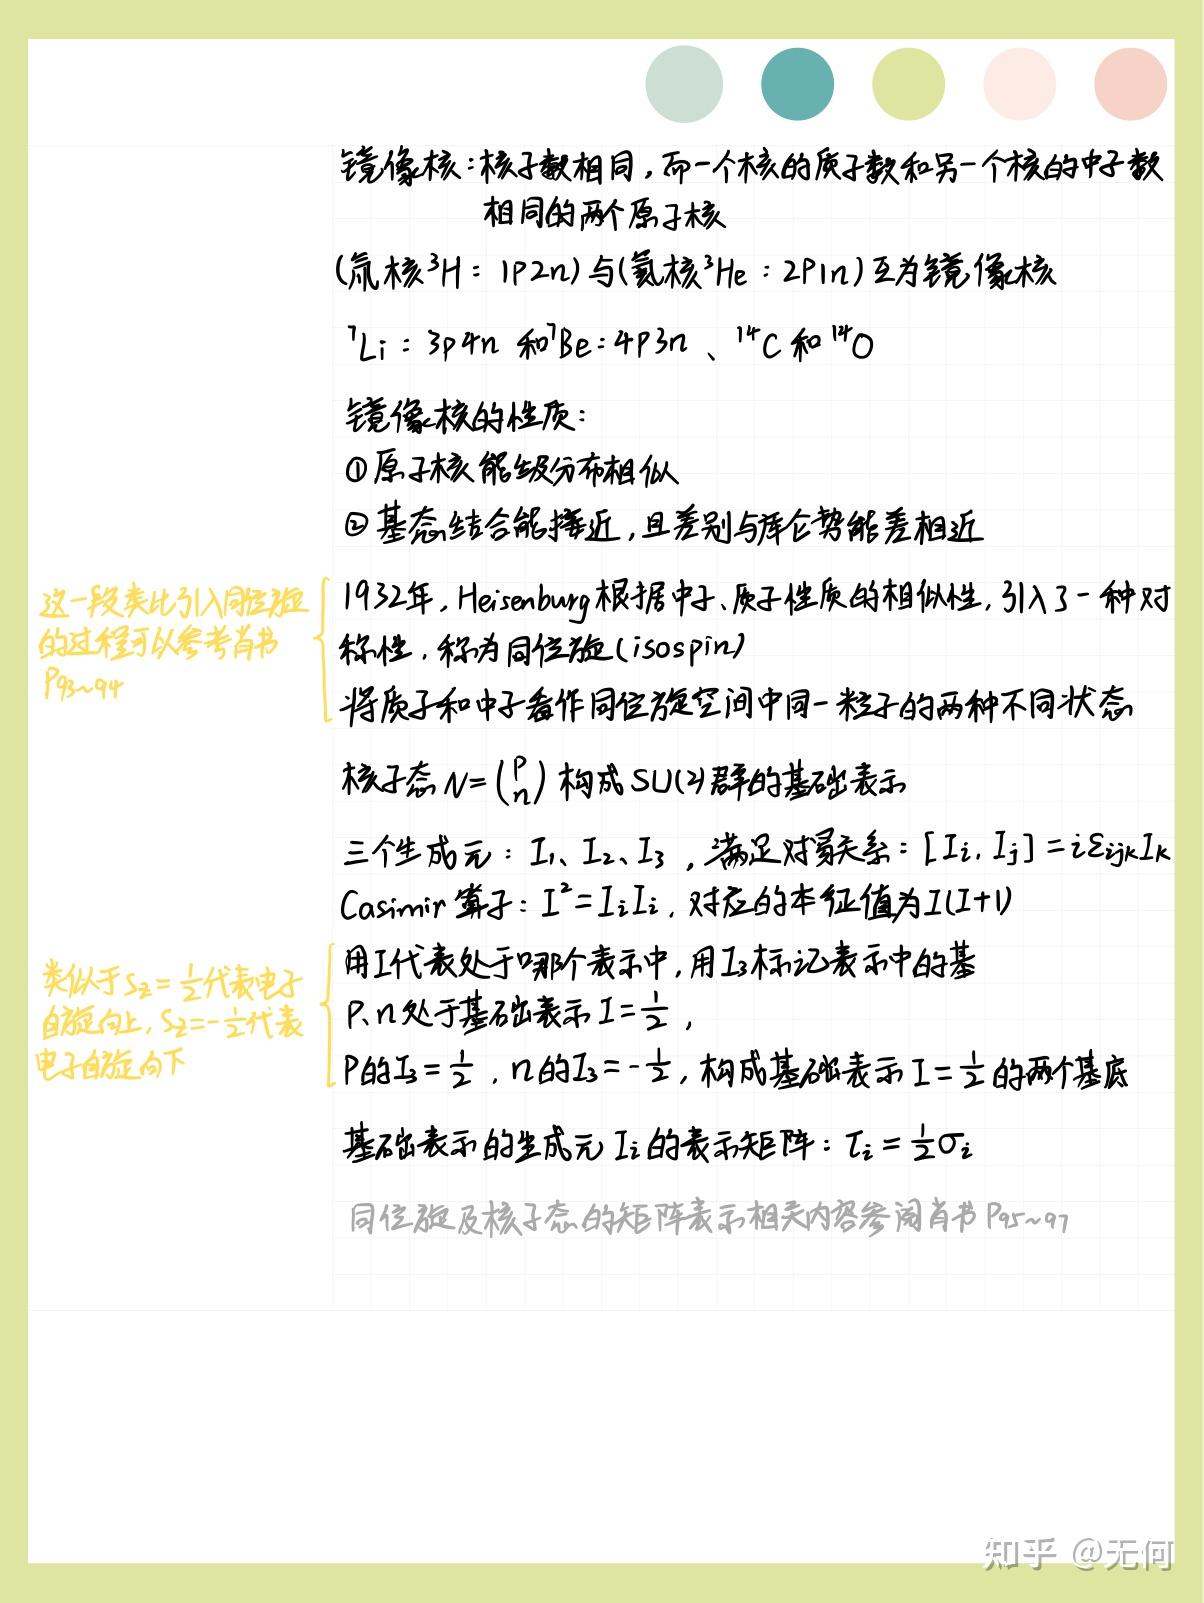 镜像核：核子数相同，而一个核的质子数和另一个核的中子数
相同的两个原子核
(氚核³H：1P2n)与(氦核³He：2P1n)互为镜像核
⁷Li：3p4n 和⁷Be：4P3n、¹⁴C和¹⁴O
镜像核的性质：
①原子核能级分布相似
②基态结合能接近，且差别与库仑势能差相近
这一段类比引入同位旋
的过程可以参考肖书
P93~94
1932年，Heisenburg根据中子、质子性质的相似性，引入了一种对
称性，称为同位旋(isospin)
将质子和中子看作同位旋空间中同一粒子的两种不同状态
核子态 N=(p n) 构成SU(2)群的基础表示
三个生成元：I₁、I₂、I₃，满足对易关系：[Iᵢ, Iⱼ]=iεᵢⱼₖIₖ
Casimir 算子：I²=IᵢIᵢ，对应的本征值为I(I+1)
类似于Sz=½代表电子
自旋向上，Sz=-½代表
电子自旋向下
用I代表处于哪个表示中，用I₃标记表示中的基
P、n处于基础表示I=½，
P的I₃=½，n的I₃=-½，构成基础表示I=½的两个基底
基础表示的生成元Iᵢ的表示矩阵：τᵢ=½σᵢ
同位旋及核子态的矩阵表示相关内容参阅肖书P95~97
知乎 @无何